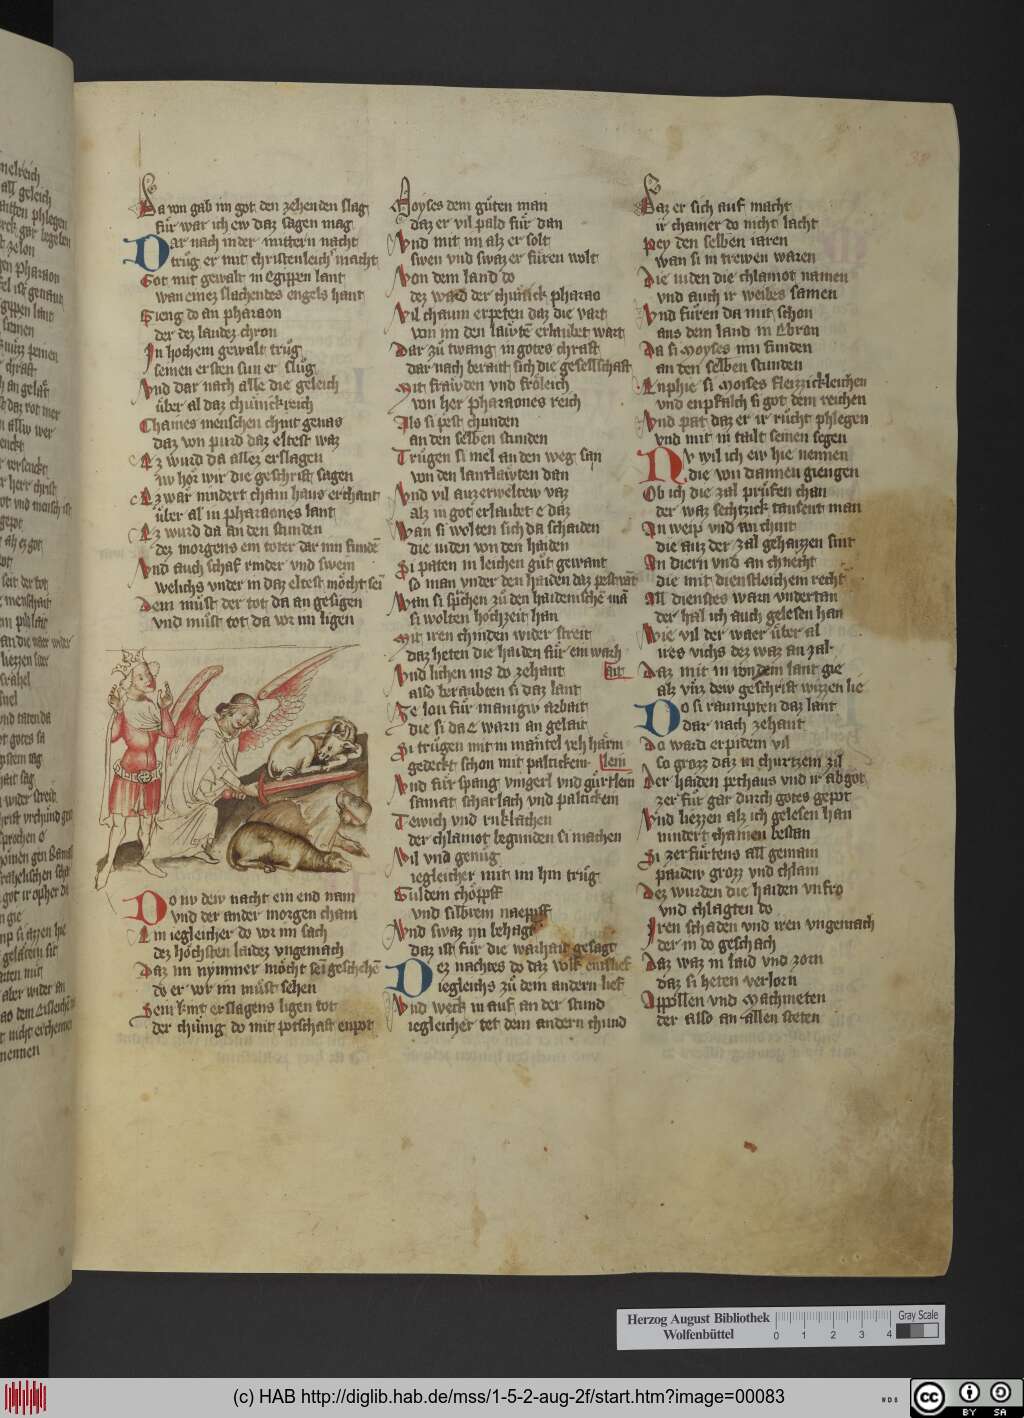 Da von gab im got den zehenden slag
für war ich ew daz sagen mag
Dar nach in der mittern nacht
trůg er mit christenleich macht
Got mit gewalt in Egippen lant
wan einez slachendes engels hant
Gieng do an pharaon
der dez landez chron
In hochem gewalt trůg
seinen ersten sun er slůg
Vnd dar nach alle die geleich
über al daz chünickreich
Chaines menschen chint genas
daz von purd daz eltest waz
Ez wurd da allez erslagen
nv hőz wir die geschrift sagen
Ez waz nindert chain haus erchant
über al in pharaones lant
Ez wurd da an den stunden
dez morgens ein toter dar inn fundē
Vnd auch schaf rinder vnd swein
welichs vnder in daz eltest mőcht sei
Dem můst der tot da an gesigen
vnd můst tot da vor im ligen
Do nv dew nacht ein end nam
vnd der ander morgen cham
Ein iegleicher do vor im sach
dez hőchsten laidez vngemach
Daz im nymmer mőcht sei geschehē
do er vor im můst sehen
Sein kint erslagens ligen tot
der chünig do mit potschaft enpot
Moyses dem gůten man
daz er vil pald für dan
Vnd mit im alz er solt
swen vnd swaz er füren wolt
Von dem land do
dez ward der chünick pharao
Vil chaum erpeten daz die vart
von im den lawtē erlaubet wart
Dar zů twang in gotes chraft
dar nach berait sich die gesellschaft
Mit frawden vnd frőleich
von her pharaones reich
Als si pest chunden
an den selben stunden
Trůgen si mel an den weg san
von den lantlawten dan
Vnd vil auzerweltew vaz
alz in got erlaubet e daz
Wan si wolten sich da schaiden
die iuden von den haiden
Si paten in leichen gůt gewant
so man vnder den haiden daz pest vāt
Wan si spchen zů den haidenischē mā
si wolten hochzeit han
Mit iren chinden wider streit
daz heten die haiden für ein warh
ait
Vnd lichen ins do zehant
also beraubten si daz lant
Ze lon für manigw arbait
die si da e warn an gelait
Si trůgen mit in māntel veh härm
gedeckt schon mit paltickein
lein
Vnd für spang vingerl vnd gürtlein
samat scharlach vnd paltickein
Tewich vnd ruklachen
der chlainot begunden si machen
Vil vnd genůg
iegleicher mit im hin trůg
Guldein chőpff
vnd silbrein naepff
Vnd swaz im behagt
daz ist für die warhait gesagt
Dez nachtes do daz volk entslief
iegleichs zů dem andern lief
Vnd weck in auf an der stund
iegleicher tet dem andern chund
Daz er sich auf macht
ir chainer do nicht lacht
Pey den selben iaren
wan si in trewen waren
Die iuden die chlainot namen
vnd auch ir weibes samen
Vnd füren da mit schon
aus dem land in Ebron
Da si Moyses inn funden
an den selben stunden
Enphie si Moises fleizzickleichen
vnd enpfalch si got dem reichen
Vnd pat daz er ir růcht phlegen
vnd mit in tailt seinen segen
Nv wil ich ew hie nennen
die von dannen giengen
Ob ich die zal prüfen chan
der waz sechtzick tausent man
An weip vnd an chint
die auz der zal gehaizzen sint
An diern vnd an chnecht
die mit dienstleichem recht
All dienstes warn vndertan
der hal ich auch gelesen han
Wie vil der waer über al
ires vichs dez waz an zal
Daz mit in von dem lant gie
alz vnz dew geschrift wizzen lie
Do si raumpten daz lant
dar nach zehant
Do ward erpidem vil
so grozz daz in churtzem zil
Der haiden pethaus vnd ir abgot
zer für gar durch gotes gepot
Vnd liezzen alz ich gelesen han
nindert chainen bestan
Si zerfürtens all gemain
paidew grozz vnd chlain
Dez wurden die haiden vnfro
vnd chlagten do
Iren schaden vnd iren vngemach
der in do geschach
Daz waz in laid vnd zorn
daz si heten verlorn
Appollen vnd Machmeten
der also an allen steten
Herzog August Bibliothek
Wolfenbüttel
0 1 2 3 4
Gray Scale
(c) HAB http://diglib.hab.de/mss/1-5-2-aug-2f/start.htm?image=00083
WDB
cc BY SA